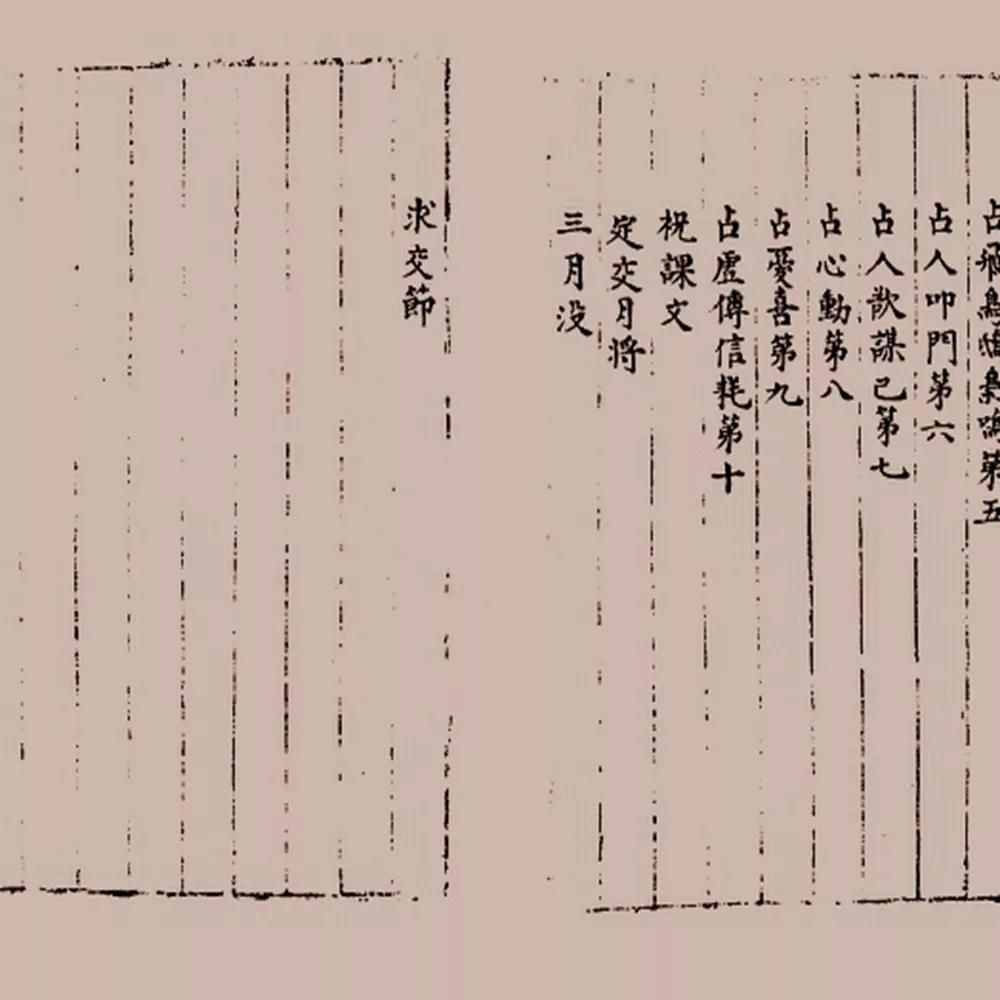 占飛鳥鴟梟鳴第五
占人叩門第六
占人欺謀己第七
占心動第八
占憂喜第九
占虛傳信耗第十
祝課文
定交月将
三月没
求交節